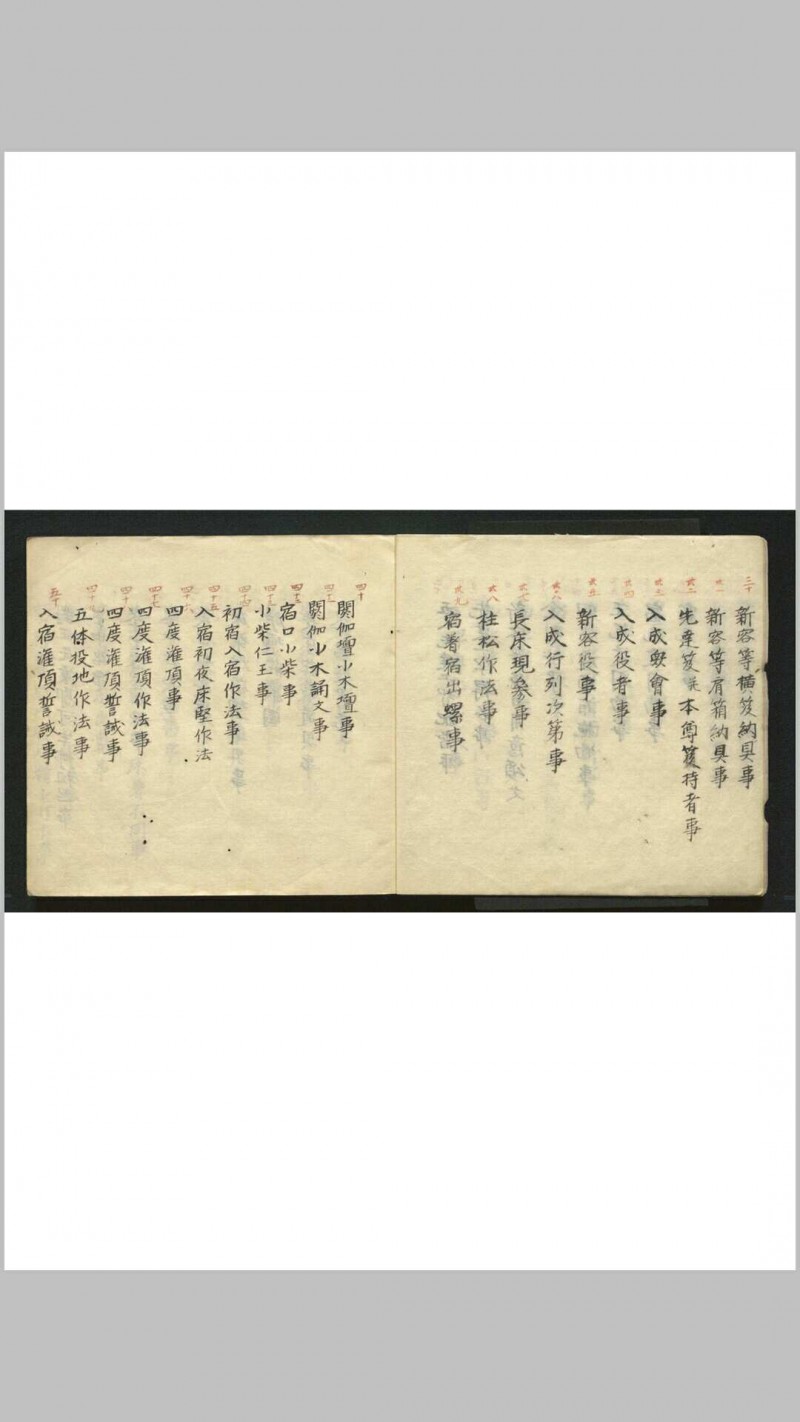 三十 新客等横笈納具事
卅一 新客等肩箱納具事
卅二 先達笈 本尊笈持者事
卅三 入成 會事
卅四 入成役者事
卅五 新客役事
卅六 入成行列次第事
卅七 長床現參事
卅八 柱松作法事
卅九 宿著宿出螺事
四十 閼伽壇小木壇事
四十一 閼伽小木誦文事
四十二 宿口小柴事
四十三 小柴仁王事
四十四 初宿入宿作法事
四十五 入宿初夜床堅作法
四十六 四度灌頂事
四十七 四度灌頂作法事
四十八 四度灌頂誓誡事
四十九 五体投地作法事
五十 入宿灌頂誓誡事